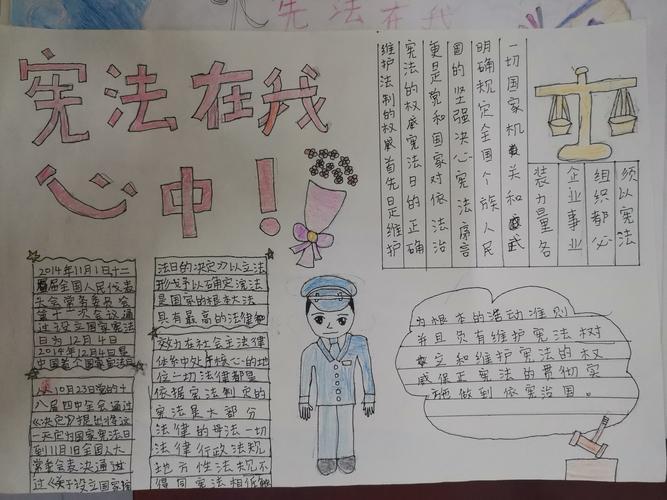 宪法在我
宪法在我
心中！
2014年11月1日十二
届全国人民代表
大会常务委员会
第十一次会议通
过设立国家宪法
日为12月4日
2014年12月4日是
中国首个国家宪法日
10月23日党的十
八届四中全会通过
《决定》提出将这
一天定为国家宪法日
到11月1日全国人大
常委会表决通过
过《关于设立国家宪
法日的决定》以立法
形式予以确定宪法
是国家的根本大法
具有最高的法律
效力在社会主法律
体系中处于核心的地
位一切法律都是
依据宪法制定的
宪法是大部分
法律的母法一切
法律行政法规
地方性法规不
得同宪法相抵触
维护法制的权威首先是维护
宪法的权威宪法日的正确
更是党和国家对依法治
国的坚强决心宪法序言
明确规定全国个族人民
一切国家机关和武
装力量各
企业事业
组织都必
须以宪法
为根本的活动准则
并且负有维护宪法树
立和维护宪法的权
威保正宪法的贯彻实
施做到依宪治国。